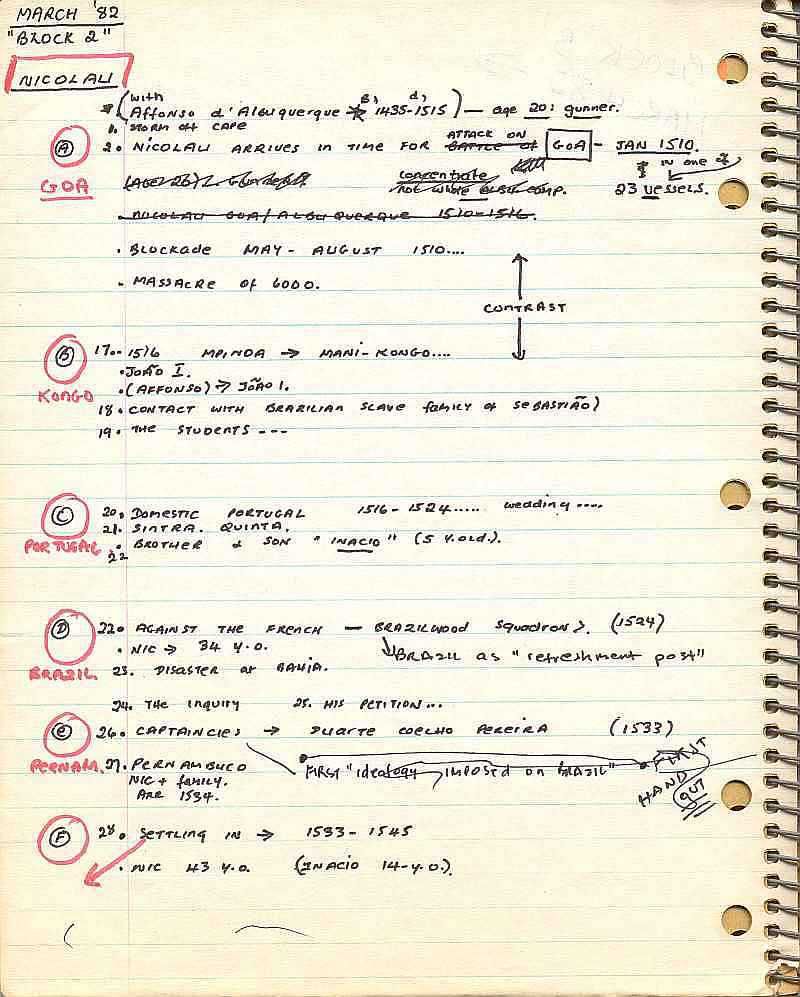 MARCH '82
"BLOCK 2"
NICOLAU
(with Affonso d'Albuquerque B, 1435-d, 1515) — age 20: gunner.
1. STORM OFF CAPE
A 2. NICOLAU ARRIVES IN TIME FOR BATTLE OF ATTACK ON GOA - JAN 1510.
GOA
concentrate
IN one of
not whole comp.
23 vessels.
. NICOLAU GOA/ALBUQUERQUE 1510-1516.
. BLOCKADE MAY - AUGUST 1510....
. MASSACRE OF 6000.
CONTRAST
B 17. 1516 MPINDA → MANI-KONGO....
. JOÃO I.
KONGO . (AFFONSO) → JOÃO I.
18. CONTACT WITH BRAZILIAN SLAVE family of SEBASTIÃO)
19. THE STUDENTS ---
C 20. DOMESTIC PORTUGAL 1516-1524..... wedding....
21. SINTRA. QUINTA.
PORTUGAL 22. BROTHER & SON "INACIO" (5 Y.old.).
D 22. AGAINST THE FRENCH — BRAZILWOOD SQUADRONS. (1524)
. NIC → 34 Y.O. BRAZIL as "refreshment post"
BRAZIL 23. DISASTER at BAHIA.
24. THE Inquiry 25. HIS PETITION...
E 26. CAPTAINCIES → DUARTE COELHO PEREIRA (1533)
PERNAM. 27. PERNAMBUCO FIRST "ideology IMPOSED on BRAZIL" FIRST
NIC + family. HAND
ARR 1534. OUT
F 28. SETTLING IN → 1533-1545
. NIC 43 Y.O. (INACIO 14-Y.O.)